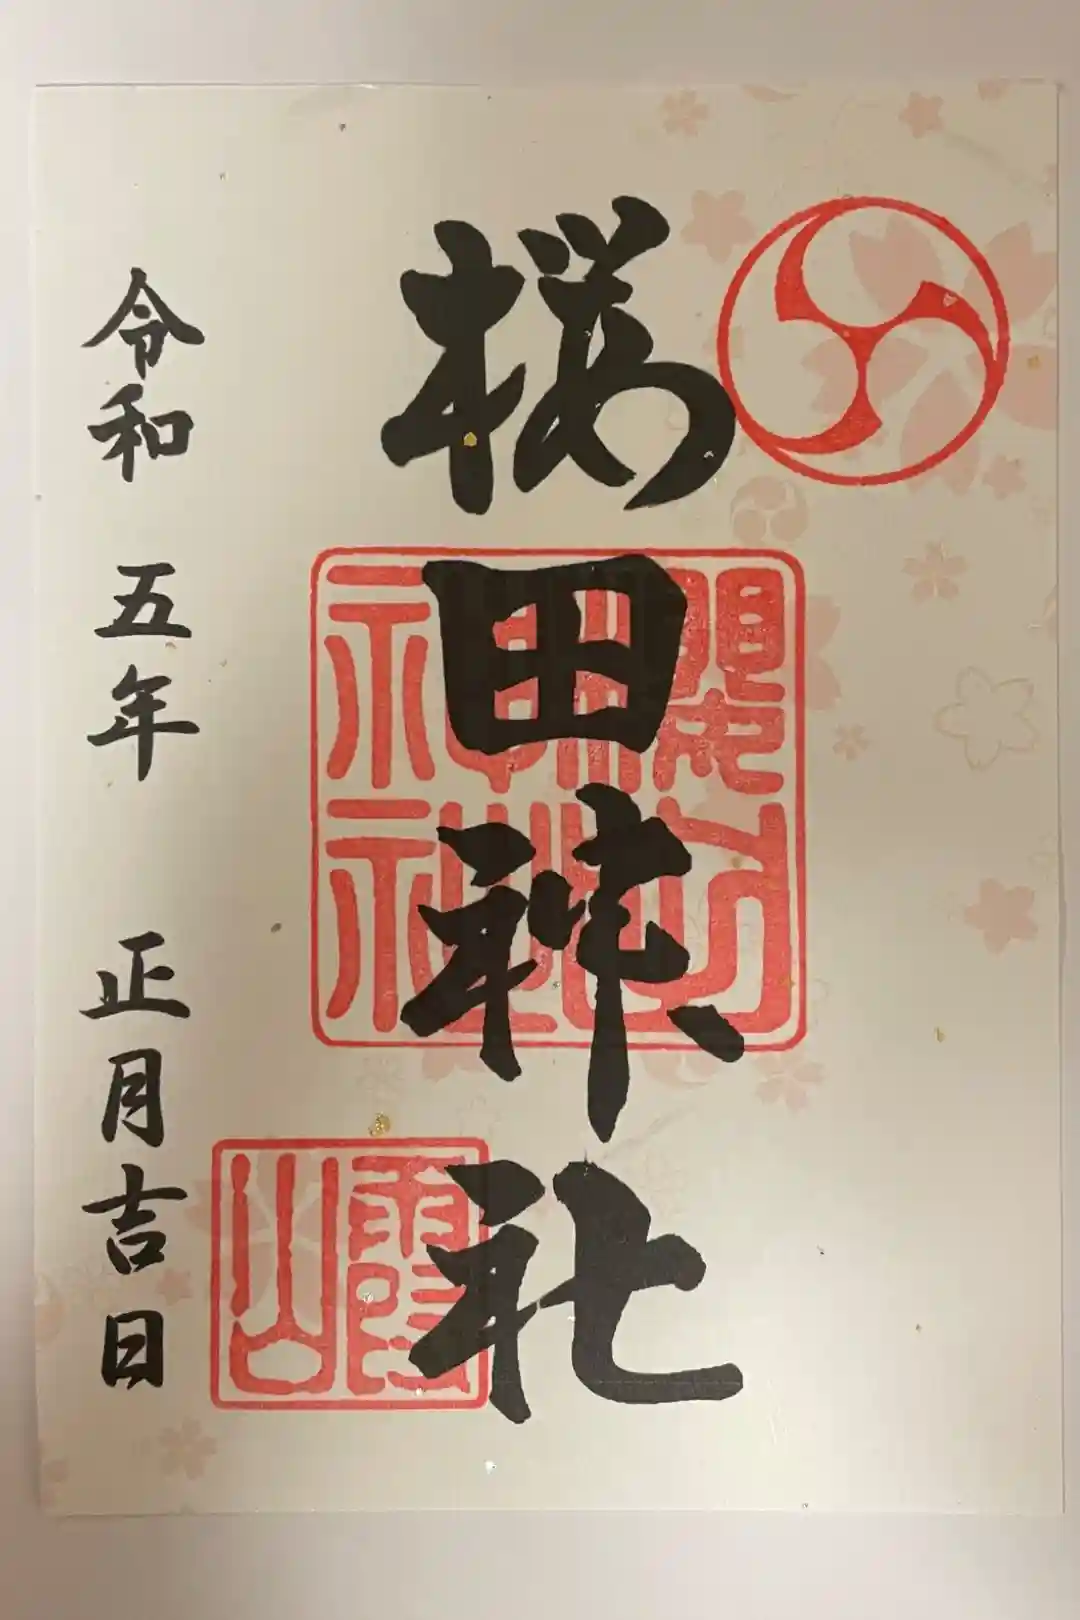 桜田神社
令和五年 正月吉日
霞山